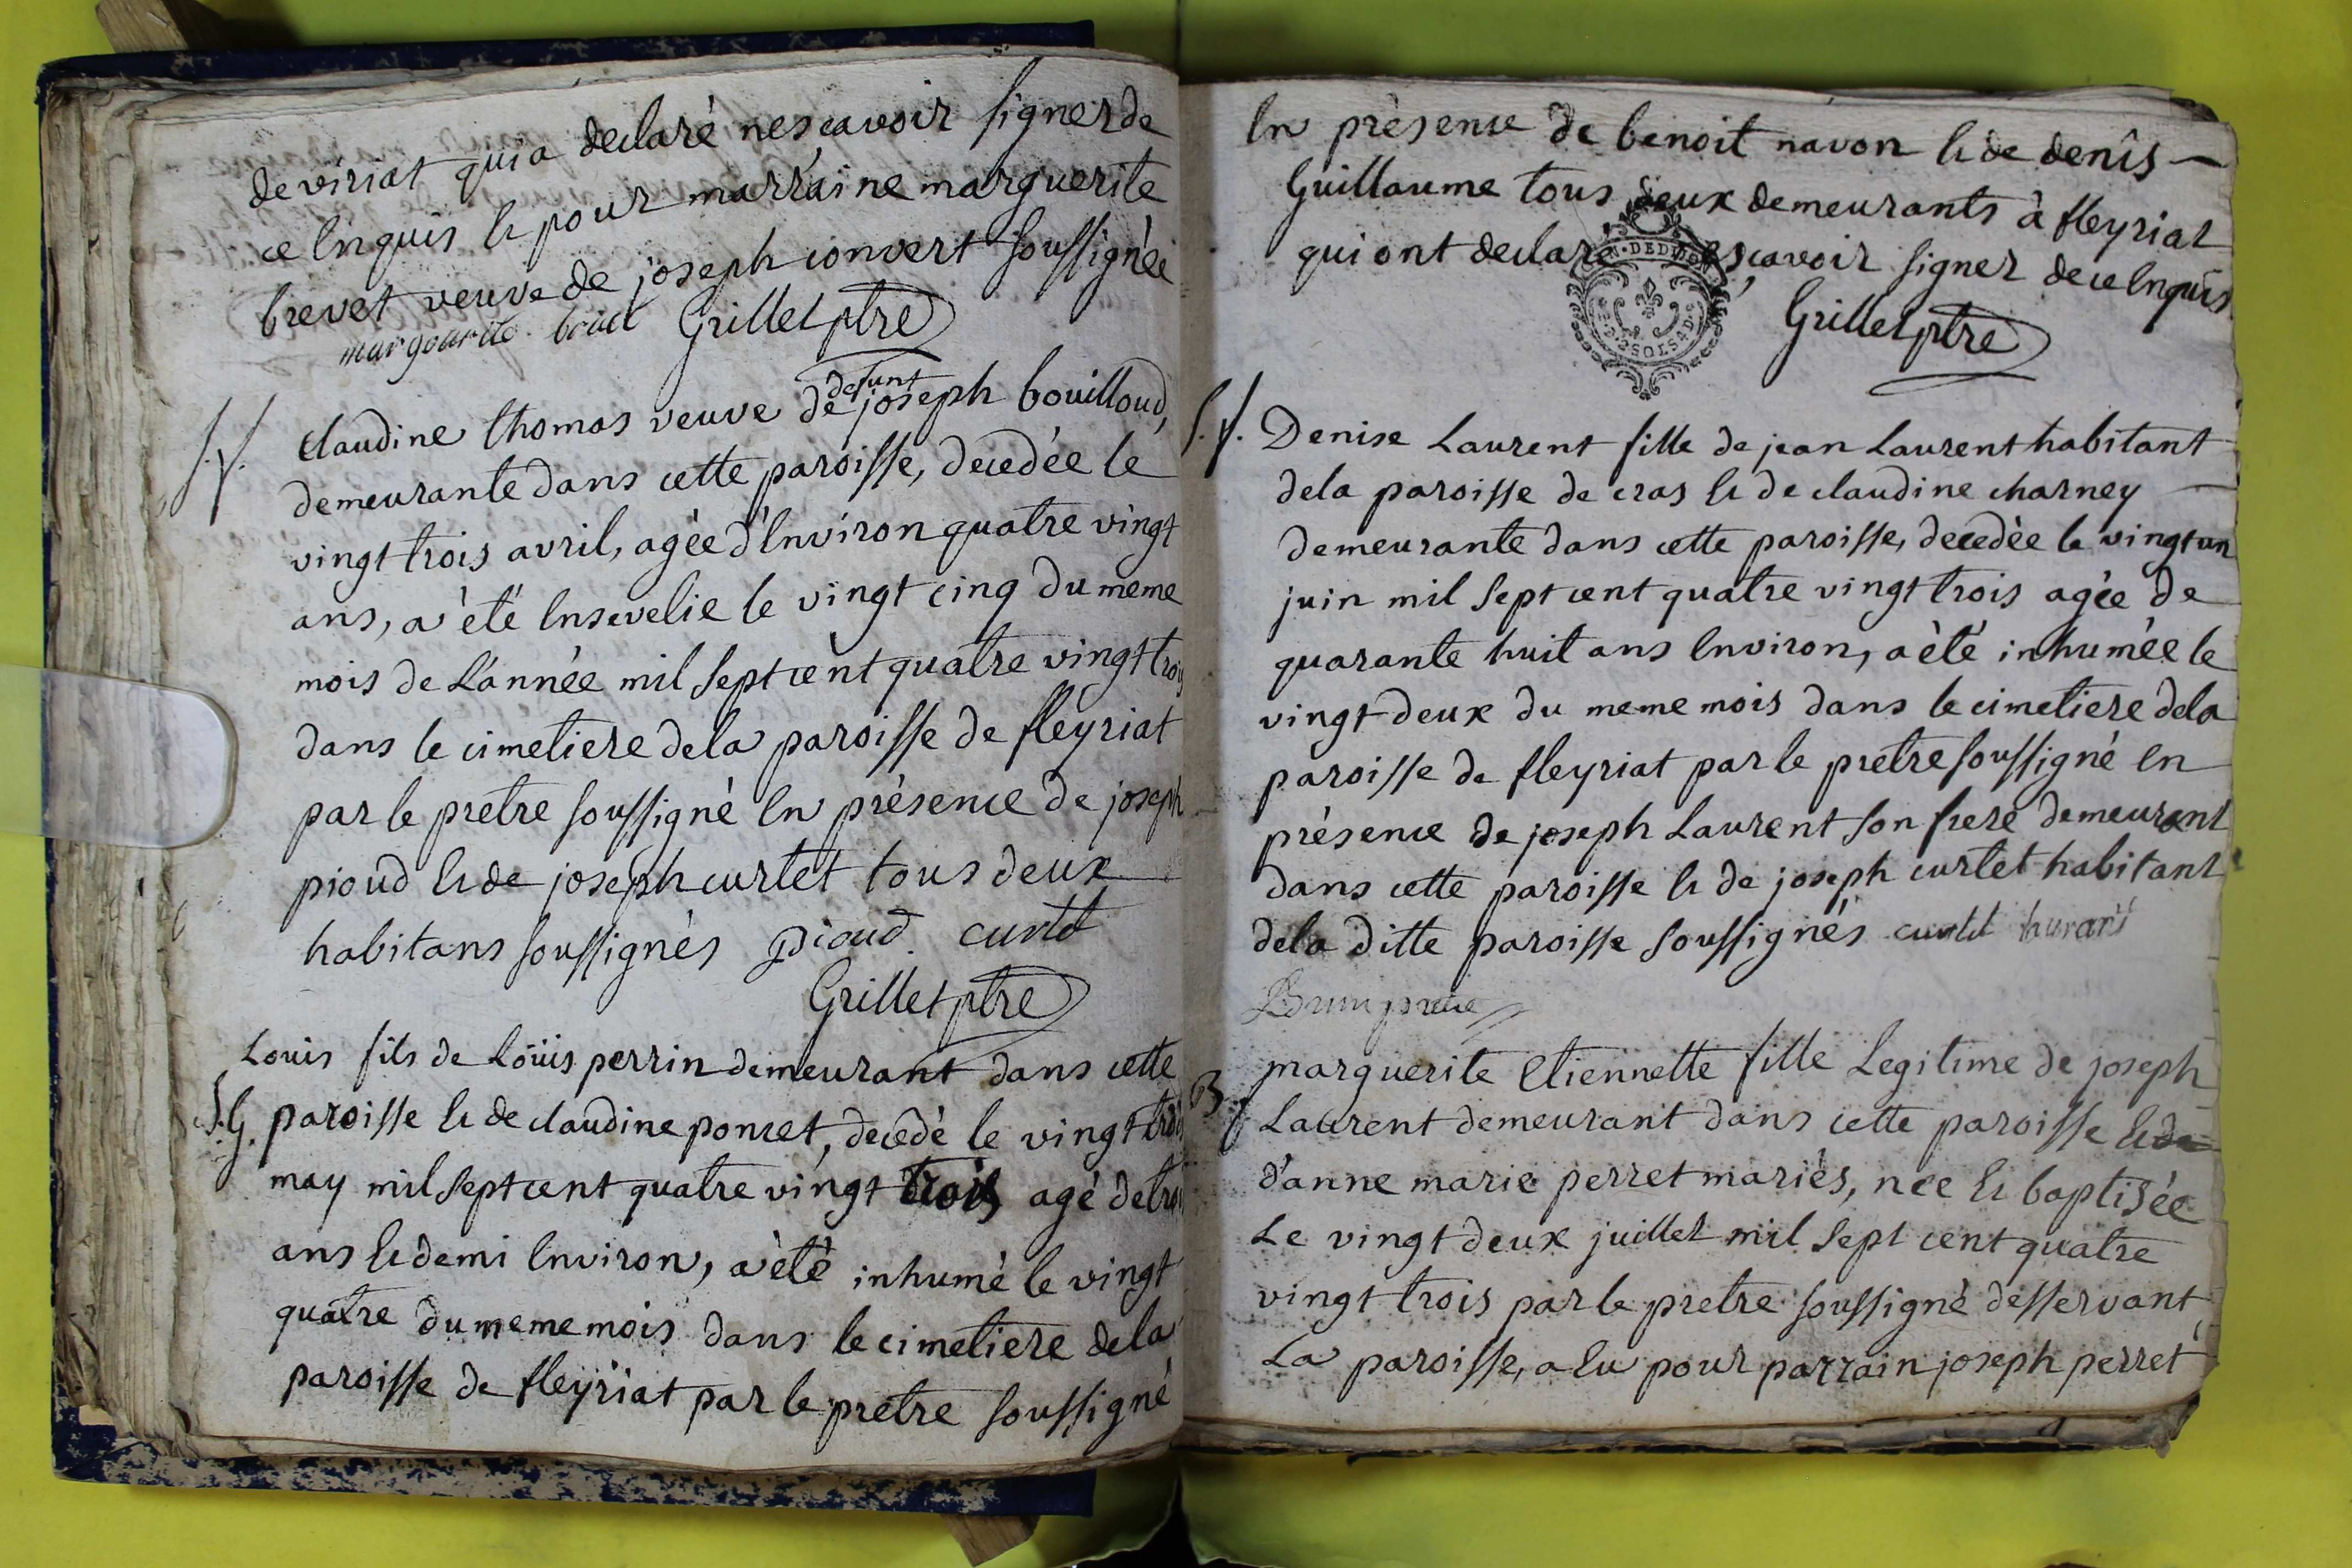 de viriat qui a declaré ne sçavoir signer de
ce enquis et pour marraine marguerite
brevet veuve de joseph convert soussignée
Grillet ptre
defunt
claudine thomas veuve de joseph bouilloud,
S.y.
demeurante dans cette paroisse, decedée le
vingt trois avril, agée d'environ quatre vingt
ans, a été ensevelie le vingt cinq du meme
mois de L'année mil sept cent quatre vingt trois
dans le cimetiere de la paroisse de fleyriat
par le pretre soussigné en présence de joseph
pioud et de joseph curtet tous deux
habitans soussignés pioud. curtet
Grillet ptre
Louis fils de Loüis perrin demeurant dans cette
S.G. paroisse et de claudine poncet, decedé le vingt trois
may mil sept cent quatre vingt trois agé de
ans et demi environ, a été inhumé le vingt
quatre du meme mois dans le cimetiere de la
paroisse de fleyriat par le pretre soussigné
en présence de benoit navon et de denîs —
Guillaume tous deux demeurants à fleyriat
qui ont declaré sçavoir signer de ce enquis
GEN. DE DIJON
2. SOLS
Grillet ptre
S.y. Denise Laurent fille de jean Laurent habitant
de la paroisse de cras et de claudine charney —
demeurante dans cette paroisse, decedée le vingt un
juin mil sept cent quatre vingt trois agée de
quarante huit ans environ, a été inhumée le
vingt deux du meme mois dans le cimetiere de la
paroisse de fleyriat par le pretre soussigné en
présence de joseph Laurent son frere demeurant
dans cette paroisse et de joseph curtet habitant
de la ditte paroisse soussignés curtet
marguerite etiennette fille Legitime de joseph
B
Laurent demeurant dans cette paroisse et de
d'anne marie perret mariés, née et baptisée
Le vingt deux juillet mil sept cent quatre
vingt trois par le pretre soussigné desservant
La paroisse, a eu pour parrain joseph perret